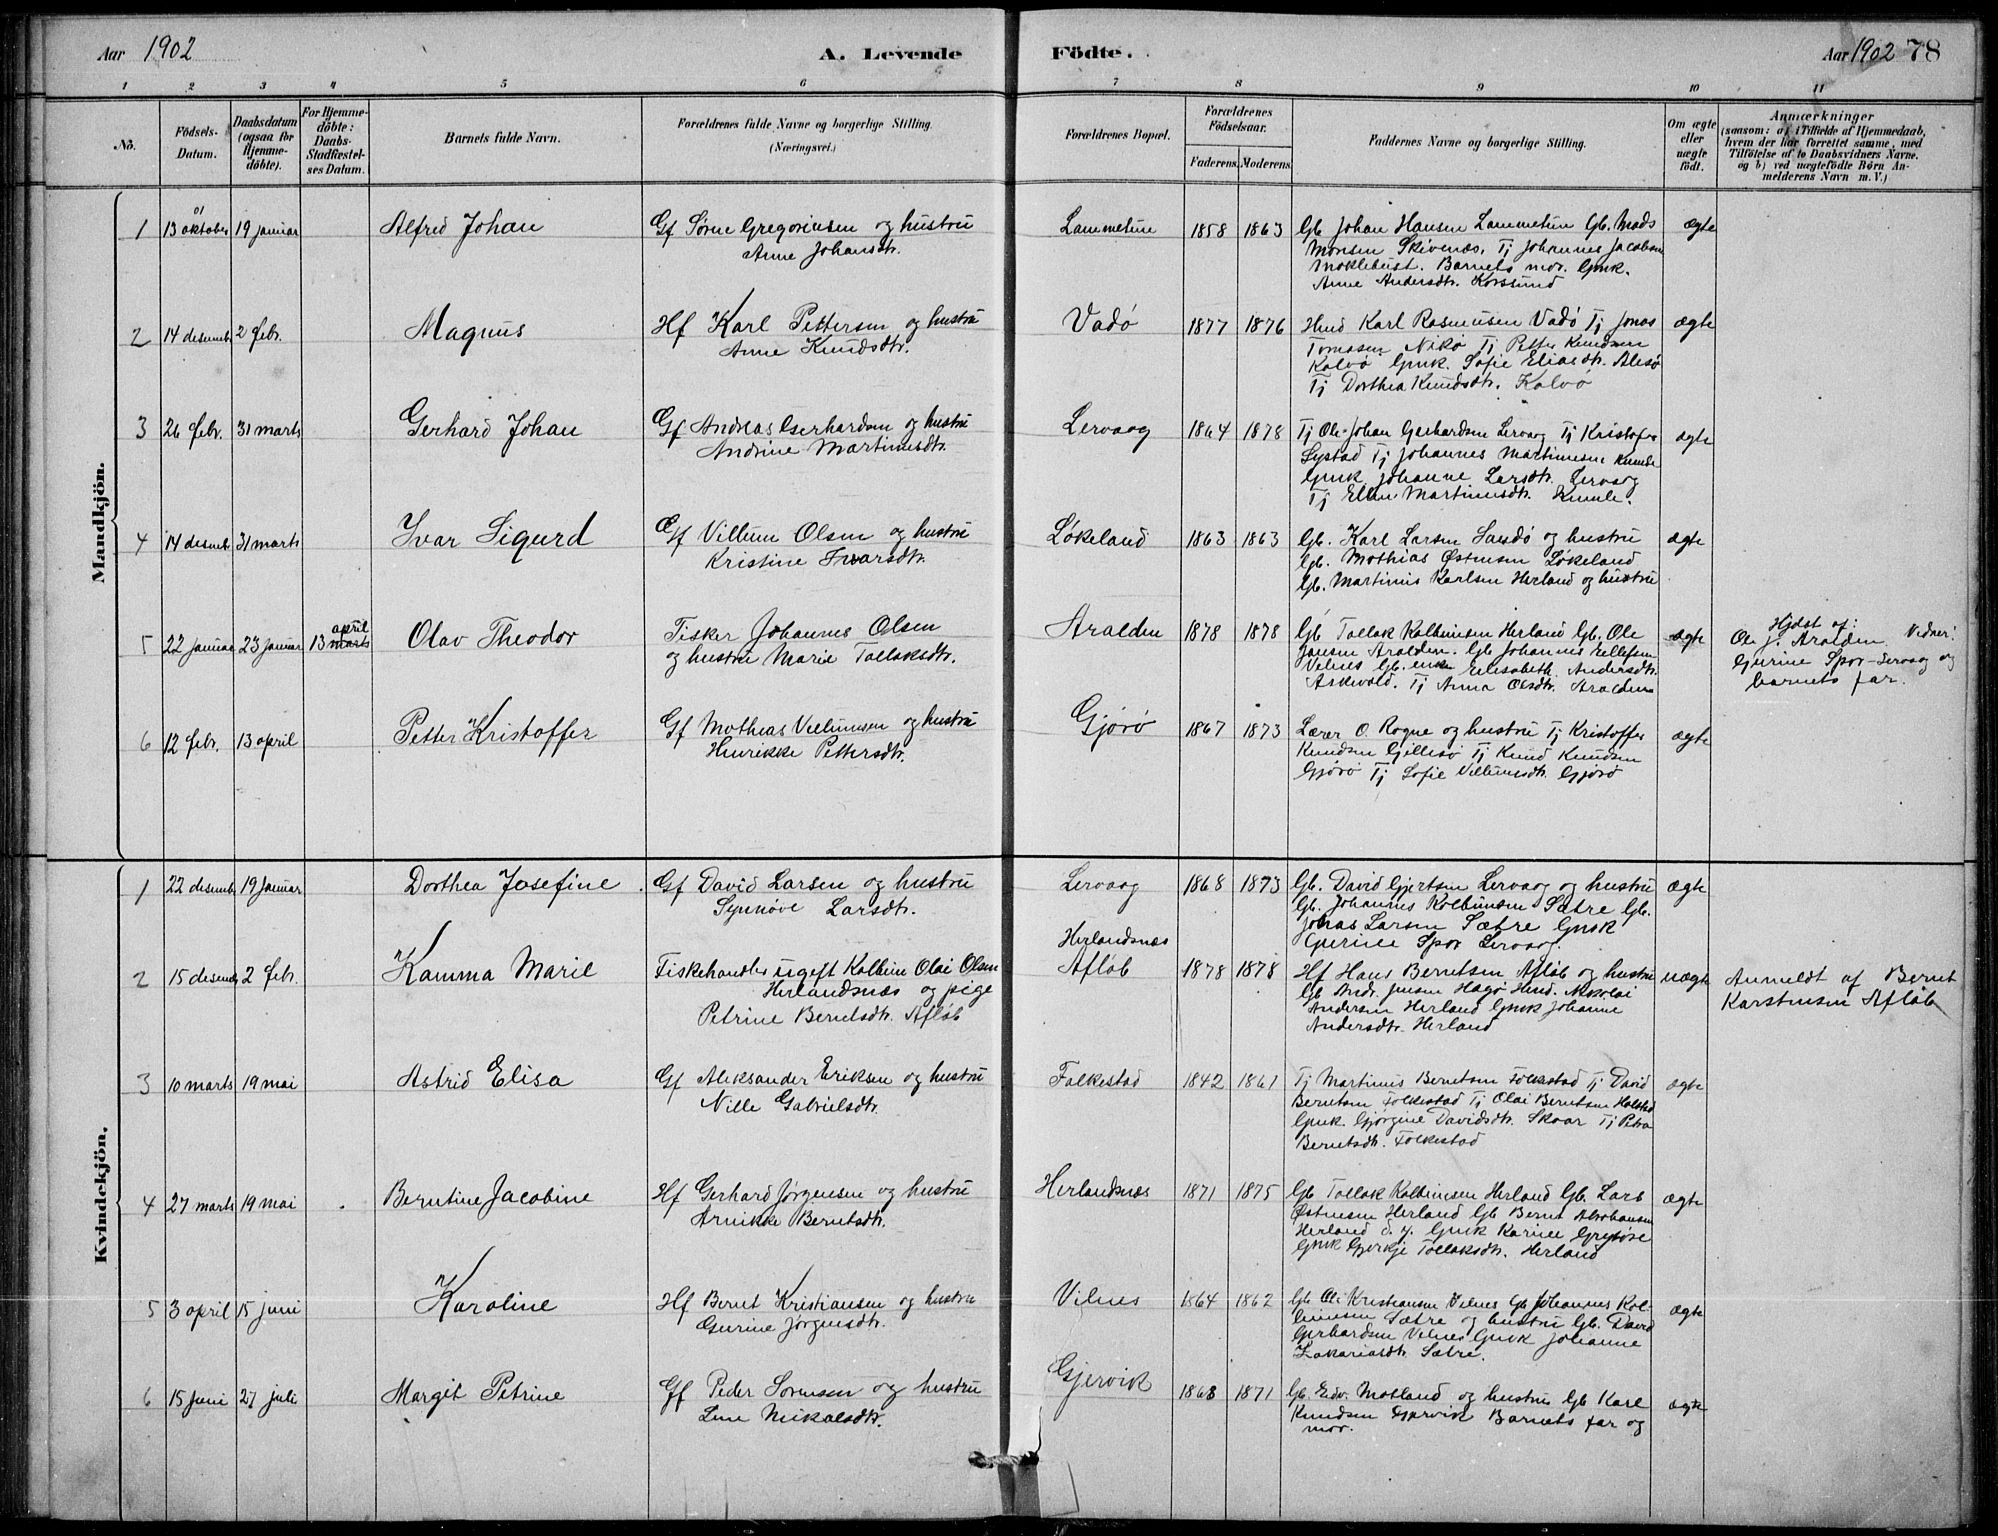 Aar 1902
A. Levende
Födte.
Aar 1902 78
1 2 3 4 5 6 7 8 9 10 11
No.
Födsels-
Datum.
Daabsdatum
(ogsaa for
Hjemme-
döbte).
For Hjemme-
döbte:
Daabs-
Stadfæstel-
ses Datum.
Barnets fulde Navn.
Forældrenes fulde Navne og borgerlige Stilling.
(Næringsvei.)
Forældrenes Bopæl.
Forældrenes
Födselsaar.
Faderens. Moderens.
Faddernes Navne og borgerlige Stilling.
Om ægte
eller
uægte
födt.
Anmærkninger
(saasom: a) i Tilfælde af Hjemmedaab,
hvem der har forrettet samme, med
Tilföielse af to Daabsvidners Navne.
og b) ved uægtefödte Börn An-
melderens Navn m. V.)
Mandkjön.
1 13 oktober 01 19 januar Alfred Johan Gf Sörne Gregoriusen og hustru
Anne Johansdtr.
Lammetun 1858 1863 Gb Johan Hansen Lammetun Gb. Mads
Monsen Skivenæs. Tj Johannes Jacobsen
Moklebust. Barnets mor. Gmk.
Anne Andersdtr. Korssund
ægte
2 14 desemb. 2 febr. Magnus Hf Karl Pettersen og hustru
Anne Knudsdtr.
Vadø 1877 1876 Hmd Karl Rasmusen Vadø Tj Jonas
Tomasen Nikø Tj Petter Knudsen
Kalvø Gmk. Sofie Eliasdtr. Alesø
Tj Dorthea Knudsdtr. Kalvø
ægte
3 26 febr. 31 marts Gerhard Johan Gf Andreas Gerhardsen og hustru
Andrine Martinusdtr.
Lervaag 1864 1878 Tj Ole Johan Gerhardsen Lervaag Tj Kristofer
Systad Tj Johannes Martinusen Kumle
Gmk Johanne Larsdtr. Lervaag
Tj Ellen Martinusdtr. Kumle.
ægte
4 14 desemb. 31 marts Ivar Sigurd Gf Villum Olsen og hustru
Kristine Ivarsdtr.
Løkeland 1863 1863 Gb. Karl Larsen Sandø og hustru
Gb. Mothias Østensen Løkeland
Gb. Martinus Karlsen Herland og hustru
ægte
5 22 januar 23 januar 13 marts april Olav Theodor Fisker Johannes Olsen
og hustru Marie Tollaksdtr.
Aralden 1878 1878 Gb Tollak Kolbensen Herland Gb. Ole
Jansen Aralden. Gb Johannes Ellefsen
Vilnes Gb. enke Elisabeth Andersdtr.
Askvold. Tj Anna Olsdtr. Aralden
ægte
Hjdøt af:
Ole J. Aralden. Vidner:
Gurine Spor-Lervaag og
barnets far.
6 12 febr. 13 april Petter Kristoffer Gf Mothias Villumsen og hustru
Henrikke Pettersdtr.
Gjørø 1867 1873 Lærer O. Rogne og hustru Tj Kristoffer
Knudsen Gillesø Tj Knud Knudsen
Gjørø Tj Sofie Villumsdtr. Gjørø
ægte
Kvindekjön.
1 22 desemb. 19 januar Dorthea Josefine Gf David Larsen og hustru
Synnøve Larsdtr.
Lervaag 1868 1873 Gb. David Gjertsen Lervaag og hustru
Gb. Johannes Kolbensen Sætre Gb.
Jonas Larsen Sætre Gmk
Gurine Spor Lervaag.
ægte
2 15 desemb. 2 febr. Kamma Marie Fiskehandler ugift Kolbein Olai Olsen
Herlandsnæs og pige
Petrine Berntsdtr. Afløb
Herlandsnæs
Afløb 1878 1878 Hf Hans Berntsen Afløb og hustru
Gb Andr. Jensen Hagø Hmd. Nikolai
Andersen Herland Gmk Johanne
Andersdtr. Herland
uægte
Anmeldt af Bernt
Karstensen Afløb
3 10 marts 19 mai Astrid Elisa Gf Aleksander Eriksen og hustru
Nille Gabrielsdtr.
Folkestad 1842 1861 Tj Martinus Berntsen Folkestad Tj David
Berntsen Folkestad Tj Olai Berntsen Holstad
Gmk. Gjørgine Davidsdtr. Skaar Tj Petra
Berntsdtr. Folkestad
ægte
4 27 marts 19 mai Berntine Jacobine Hf Gerhard Jørgensen og hustru
Arnikke Berntsdtr.
Herlandsnæs 1871 1875 Gb Tollak Kolbensen Herland Gb. Lars
Østensen Herland Gb Bernt Abrahamsen
Herland d. y. Gmk Karine Grytøre
Gmk Gjertje Tollaksdtr. Herland
ægte
5 3 april 15 juni Karoline Hf Bernt Kristiansen og hustru
Gurine Jørgensdtr.
Vilnes 1864 1862 Gb Ole Kristiansen Vilnes Gb Johannes Kol-
bensen Sætre og hustru Gb. David
Gerhardsen Vilnes Gmk Johanne
Zakariasdtr. Sætre.
ægte
6 15 juni 27 juli Margit Petrine Gf Peder Sørensen og hustru
Lene Nikolaisdtr.
Gjervik 1868 1871 Gb. Edv. Motland og hustru Gb Karl
Knudsen Gjervik Barnets far og
mor.
ægte